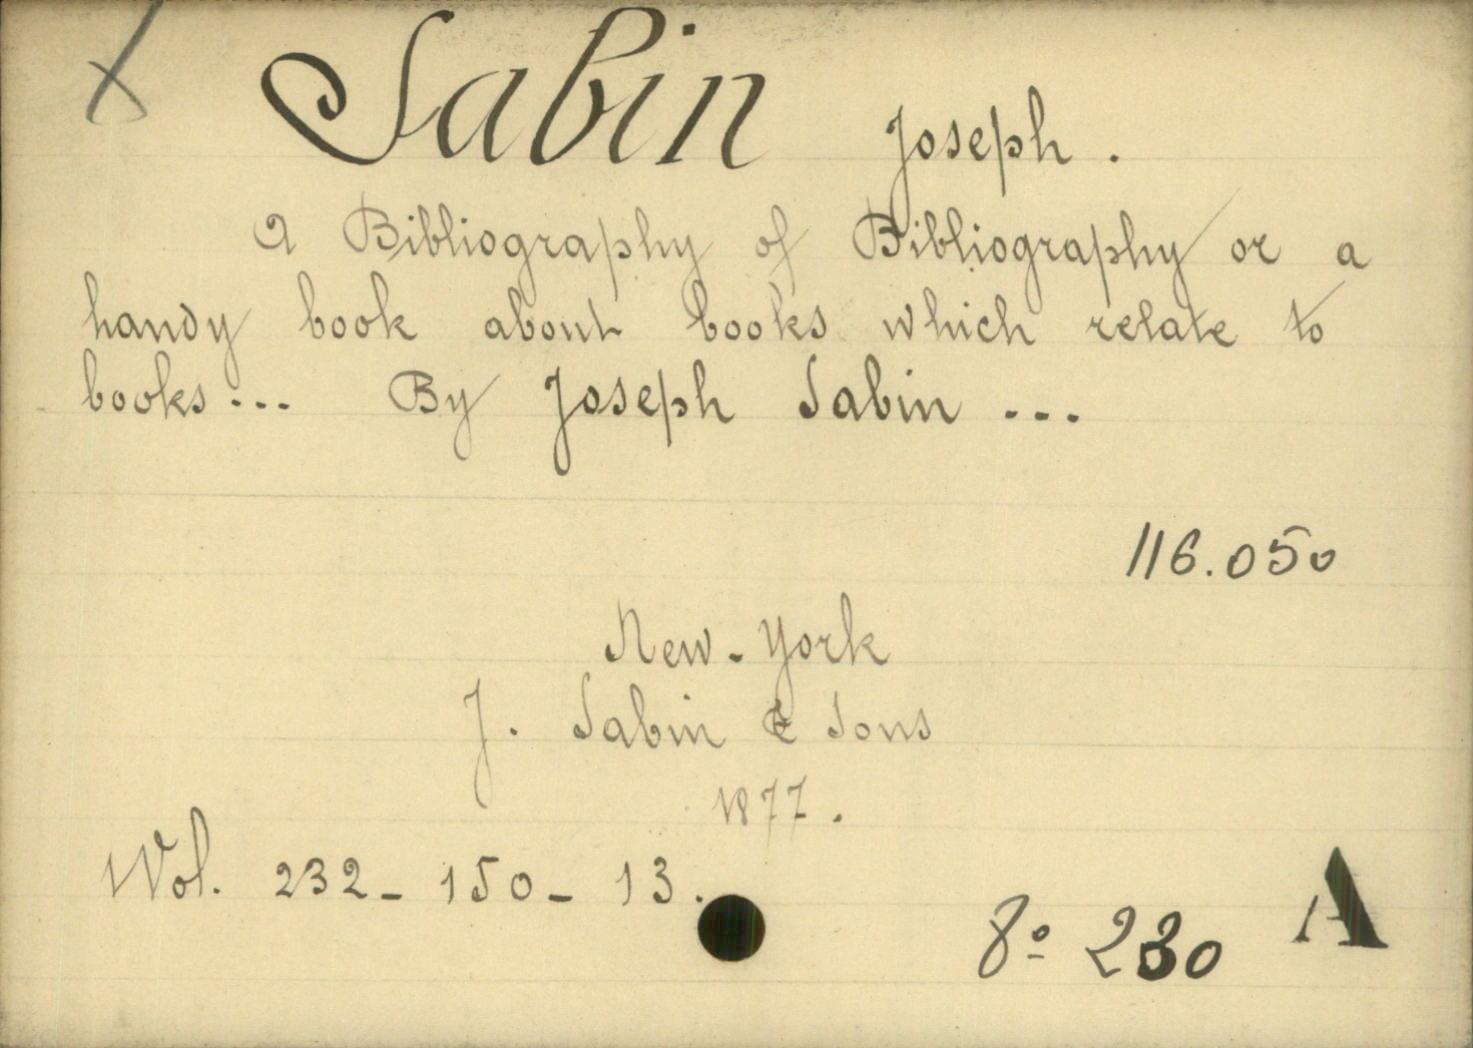 Sabin Joseph.
A Bibliography of Bibliography or a
handy book about books which relate to
books... By Joseph Sabin ...
116.050
New-York
J. Sabin & Sons
1877.
Vol. 232-150-13.
8º 230 A